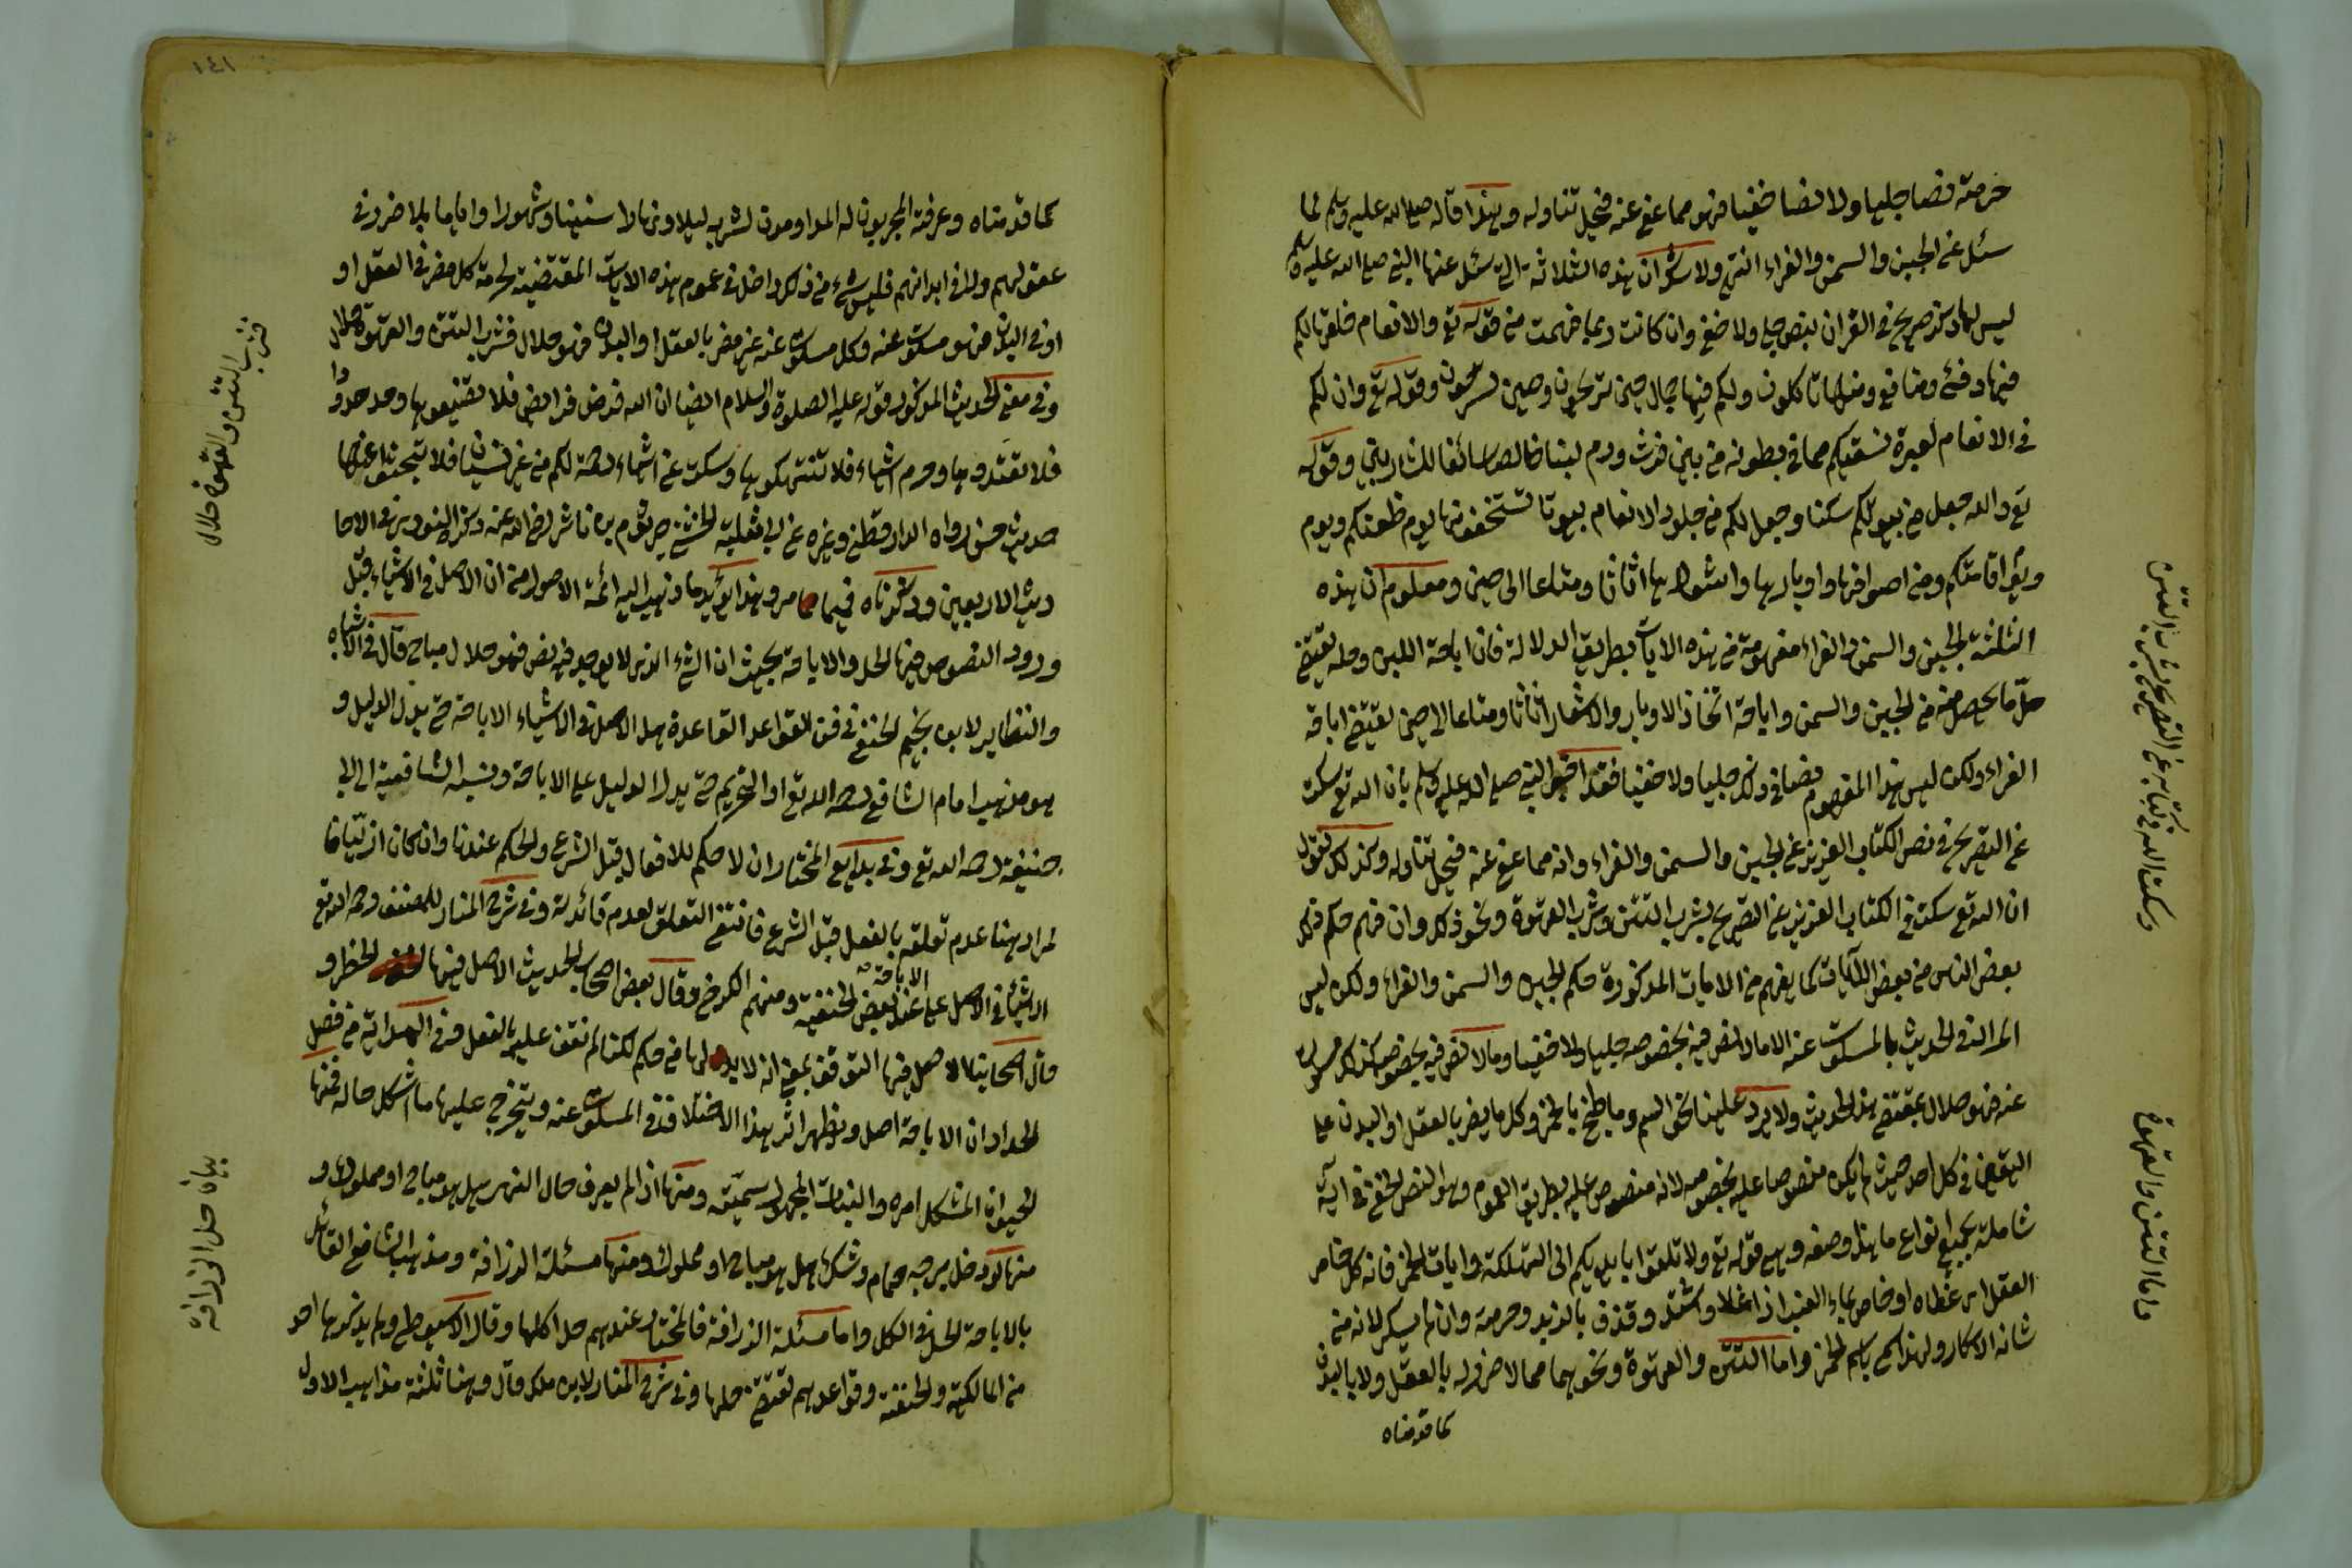 حرمته نصا جليا ولا نصا خفيا فهو مما عفي عنه فيحل تناوله وبهذا قاله صلى الله عليه وسلم لما
سئل عن الجبن والسمن والفراء انتهى ولا شك ان هذه الثلاثة التي سئل عنها النبي صلى الله عليه وسلم
ليس لها ذكر صريح في القران بنص جلي ولا خفي وان كانت ربما فهمت من قوله تع والانعام خلقها لكم
فيها دفئ ومنافع ومنها تاكلون ولكم فيها جمال حين تريحون وحين تسرحون وقوله تع وان لكم
في الانعام لعبرة نسقيكم مما في بطونه من بين فرث ودم لبنا خالصا سائغا للشاربين وقوله
تع والله جعل من بيوتكم سكنا وجعل لكم من جلود الانعام بيوتا تستخفونها يوم ظعنكم ويوم
ويوم اقامتكم ومن اصوافها واوبارها واشعارها اثاثا ومتاعا الى حين ومعلوم ان هذه
الثلثة الجبن والسمن والفراء مفهومة من هذه الايات بطريق الدلالة فان اباحة اللبن وحله يقتضي
حل ما يحصل منه من الجبن والسمن واباحة اتخاذ الاوبار والاشعار اثاثا ومتاعا الى حين يقتضي اباحة
الفراء ولكن ليس هذا المفهوم نصا في ذلك جليا ولا خفيا فقد اخبر النبي صلى الله عليه وسلم بان الله تع سكت
عن التصريح في نص الكتاب العزيز عن الجبن والسمن والفراء وانه مما عفي عنه فيحل تناوله وكذلك نقول
ان الله تع سكت في الكتاب العزيز عن التصريح بشرب التتن وشرب القهوة ونحو ذلك وان فهم حكم ذلك
بعض الناس من بعض الآيات كما يفهم من الايات المذكورة حكم الجبن والسمن والفراء ولكن ليس
المراد في الحديث بالمسكوت عنه الا ما لا نص فيه بخصوصه جليا ولا خفيا وما لا نص فيه بخصوصه كذلك مسكوت
عنه فهو حلال بمقتضى هذا الحديث ولا يرد علينا نحو السم وما طبخ بالخمر وكل ما يضر بالعقل او البدن على
اليقين في كل احد حيث لم يكن منصوصا عليه بخصوصه لانه منصوص عليه بطريق العموم وهو النص الخفي في آية
شاملة بجميع انواع ما هذا وصفه وهي قوله تع ولا تلقوا بايديكم الى التهلكة وايات الخمر فانه كل خامر
العقل اي غطاه او خاص بماء العنب اذا غلا واشتد وقذف بالزبد وحرمته وان لم يسكر لانه من
شانه الاسكار ولهذا سمي باسم الخمر واما التتن والقهوة ونحوهما مما لا ضرر له بالعقل ولا بالبدن
كما قدمناه
وسكت الله في كتابه عن التصريح بشرب التتن
واما التتن والقهوة
١٤١
كما قدمناه وعرفته المجربون له المداومون لشربه ليلا ونهارا سنينا وشهورا واياما بلا ضرر في
عقولهم ولا في ابدانهم فليس شيء من ذلك داخل في عموم هذه الايات المقتضية لحرمة كل مضر في العقل او
او في البدن فهو مسكوت عنه وكل مسكوت عنه غير مضر بالعقل او البدن فهو حلال فشرب التتن والقهوة حلال
وفي معنى الحديث المذكور قوله عليه الصلوة والسلام ايضا ان الله فرض فرائض فلا تضيعوها وحد حدودا
فلا تعتدوها وحرم اشياء فلا تنتهكوها وسكت عن اشياء رحمة لكم من غير نسيان فلا تبحثوا عنها
حديث حسن رواه الدارقطني وغيره عن ابي ثعلبة الخشني جرثوم بن ناشر رضي الله عنه وذكره النووي في الاحا
ديث الاربعين وذكرناه فيما مر وهذا يؤيد ما ذهب اليه ائمة الاصول من ان الاصل في الاشياء قبل
ورود النصوص فيها الحل والاباحة بحيث ان الشئ الذي لا يوجد فيه نص فهو حلال مباح قال في الاشباه
والنظاير لابن نجيم الحنفي في فن القواعد القاعدة هل الاصل في الاشياء الاباحة حتى يدل الدليل و
هو مذهب امام الشافعي رحمه الله تع او التحريم حتى يدل الدليل على الاباحة ونسبه الشافعية الى ابي
حنيفة رحمه الله تع وفي بدايع المختار ان لا حكم للافعال قبل الشرع والحكم عندنا وان كان ازليا فا
لمراد هنا عدم تعلقه بالفعل قبل الشرع فانتفى التعلق لعدم فائدته وفي شرح المنار للمصنف رحمه الله تع
الاشياء في الاصل على الاباحة عند بعض الحنفية ومنهم الكرخي وقال بعض اصحاب الحديث الاصل فيها الحظر و
قال اصحابنا الاصل فيها التوقف بمعنى انه لا بد لها من حكم لكنا لم نقف عليه بالفعل وفي الهداية من فصل
الحداد ان الاباحة اصل ويظهر اثر هذا الاختلاف في المسكوت عنه ويتخرج عليها ما اشكل حاله فمنها
الحيوان المشكل امره والنبات المجهول سميته ومنها اذا لم يعرف حال النهر هل هو مباح او مملوك و
منها لو دخل برجه حمام وشك هل هو مباح او مملوك ومنها مسئلة الزرافة ومذهب الشافعي القائل
بالاباحة الحل في الكل واما مسئلة الزرافة فالمختار عندهم حل اكلها وقال الاسيوطي ولم يذكرها احد
من المالكية والحنفية وقواعدهم تقتضي حلها وفي شرح المنار لابن ملك قال وهنا ثلثة مذاهب الاول
فشرب التتن والقهوة حلال
بيان حل الزرافة